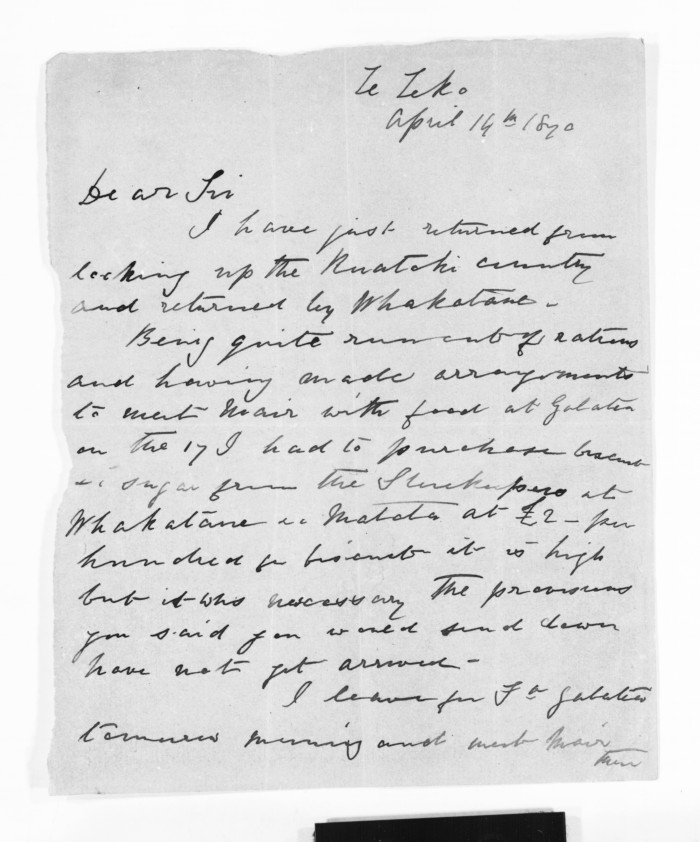 Te Teko
April 14th 1870
Dear Sir
I have just returned from
looking up the Ruatoki country
and returned by Whakatane -
Being quite run out of rations
and having made arrangements
to meet Mair with food at Galatea
on the 17 I had to purchase biscuit
& sugar from the Storekeepers at
Whakatane & Matata at £2 - per
hundred for biscuit it is high
but it was necessary the provisions
you said you would send down
have not yet arrived -
I leave for Ft Galatea
tomorrow morning and meet Mair
there